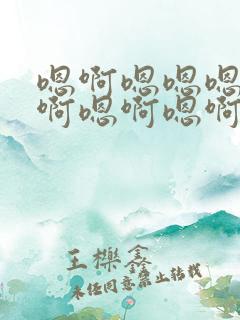 嗯啊嗯嗯嗯
啊嗯啊嗯啊
王樂鑫
未经同意禁止转载